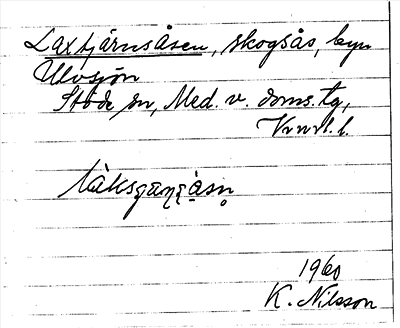 Laxtjärnsåsen, skogsås, byn
Ulvsjön
Stöde sn, Med. v. doms. tg,
Vnrl. l.
1960
K. Nilsson